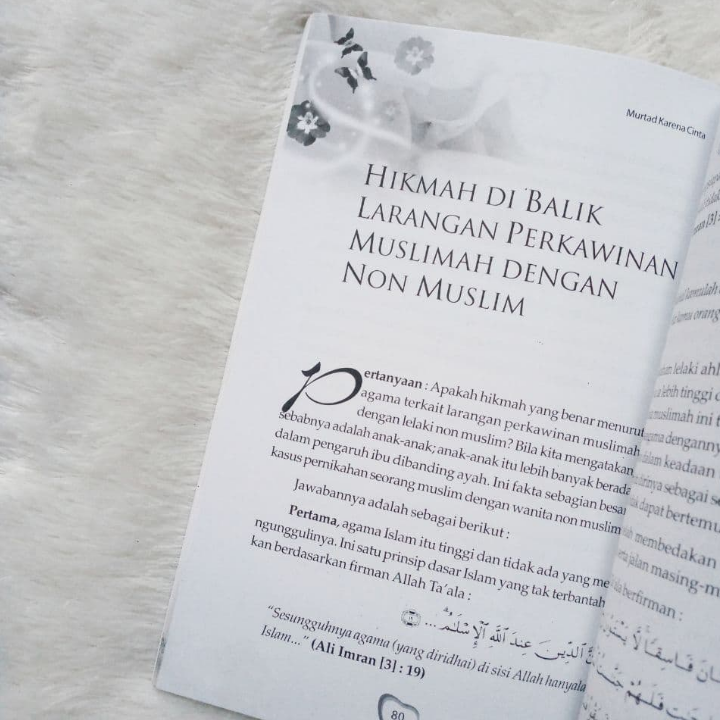 Murtad Karena Cinta
HIKMAH DI BALIK
LARANGAN PERKAWINAN
MUSLIMAH DENGAN
NON MUSLIM
Pertanyaan : Apakah hikmah yang benar menurut
agama terkait larangan perkawinan muslimah
dengan lelaki non muslim? Bila kita mengatakan
sebabnya adalah anak-anak; anak-anak itu lebih banyak berada
dalam pengaruh ibu dibanding ayah. Ini fakta sebagian besar
kasus pernikahan seorang muslim dengan wanita non muslim
Jawabannya adalah sebagai berikut :
Pertama, agama Islam itu tinggi dan tidak ada yang me
ngunggulinya. Ini satu prinsip dasar Islam yang tak terbantah
kan berdasarkan firman Allah Ta'ala :
الدِّينَ عِندَ اللَّهِ الْإِسْلَامُ ...
"Sesungguhnya agama (yang diridhai) di sisi Allah hanyala
Islam..." (Ali Imran [3] : 19)
80
lelaki ahl
lebih tinggi d
muslimah ini t
agama denganny
dalam keadaan
sebagai se
dapat bertemu
membedakan
jalan masing-m
berfirman :